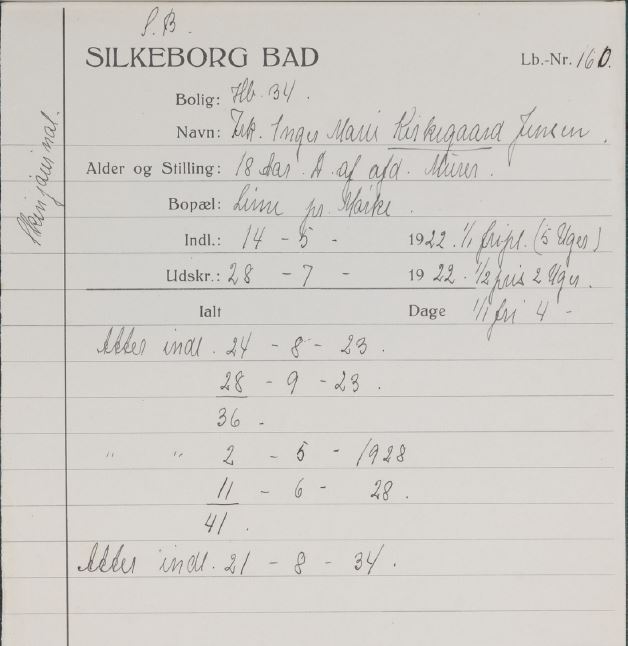 S.B.
SILKEBORG BAD
Lb.-Nr. 160.
Bolig: Hb. 34.
Navn: Frk. Inger Marie Kirkegaard Jensen.
Alder og Stilling: 18 Aar. D. af afd. Murer.
Bopæl: Lime pr. Mørke.
Indl.: 14 - 5 - 1922. 1/1 fripl. (5 Uger)
Udskr.: 28 - 7 - 1922. 1/2 pris 2 Uger.
Ialt Dage 1/1 fri 4 -
Atter indl. 24 - 8 - 23.
28 - 9 - 23.
36.
" " 2 - 5 - 1928
11 - 6 - 28.
41.
Atter indl. 21 - 8 - 34.